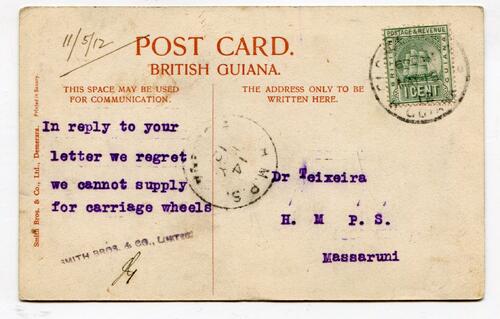 11/5/12
POST CARD.
BRITISH GUIANA.
THIS SPACE MAY BE USED
FOR COMMUNICATION.
THE ADDRESS ONLY TO BE
WRITTEN HERE.
POSTAGE & REVENUE
BRITISH
GUIANA
1 CENT
In reply to your
letter we regret
we cannot supply
for carriage wheels
SMITH BROS. & CO., LIMITED
H.M.P.S.
14
Dr Teixeira
H. M P S.
Massaruni
Smith Bros. & Co., Ltd., Demerara.
Printed in Saxony.